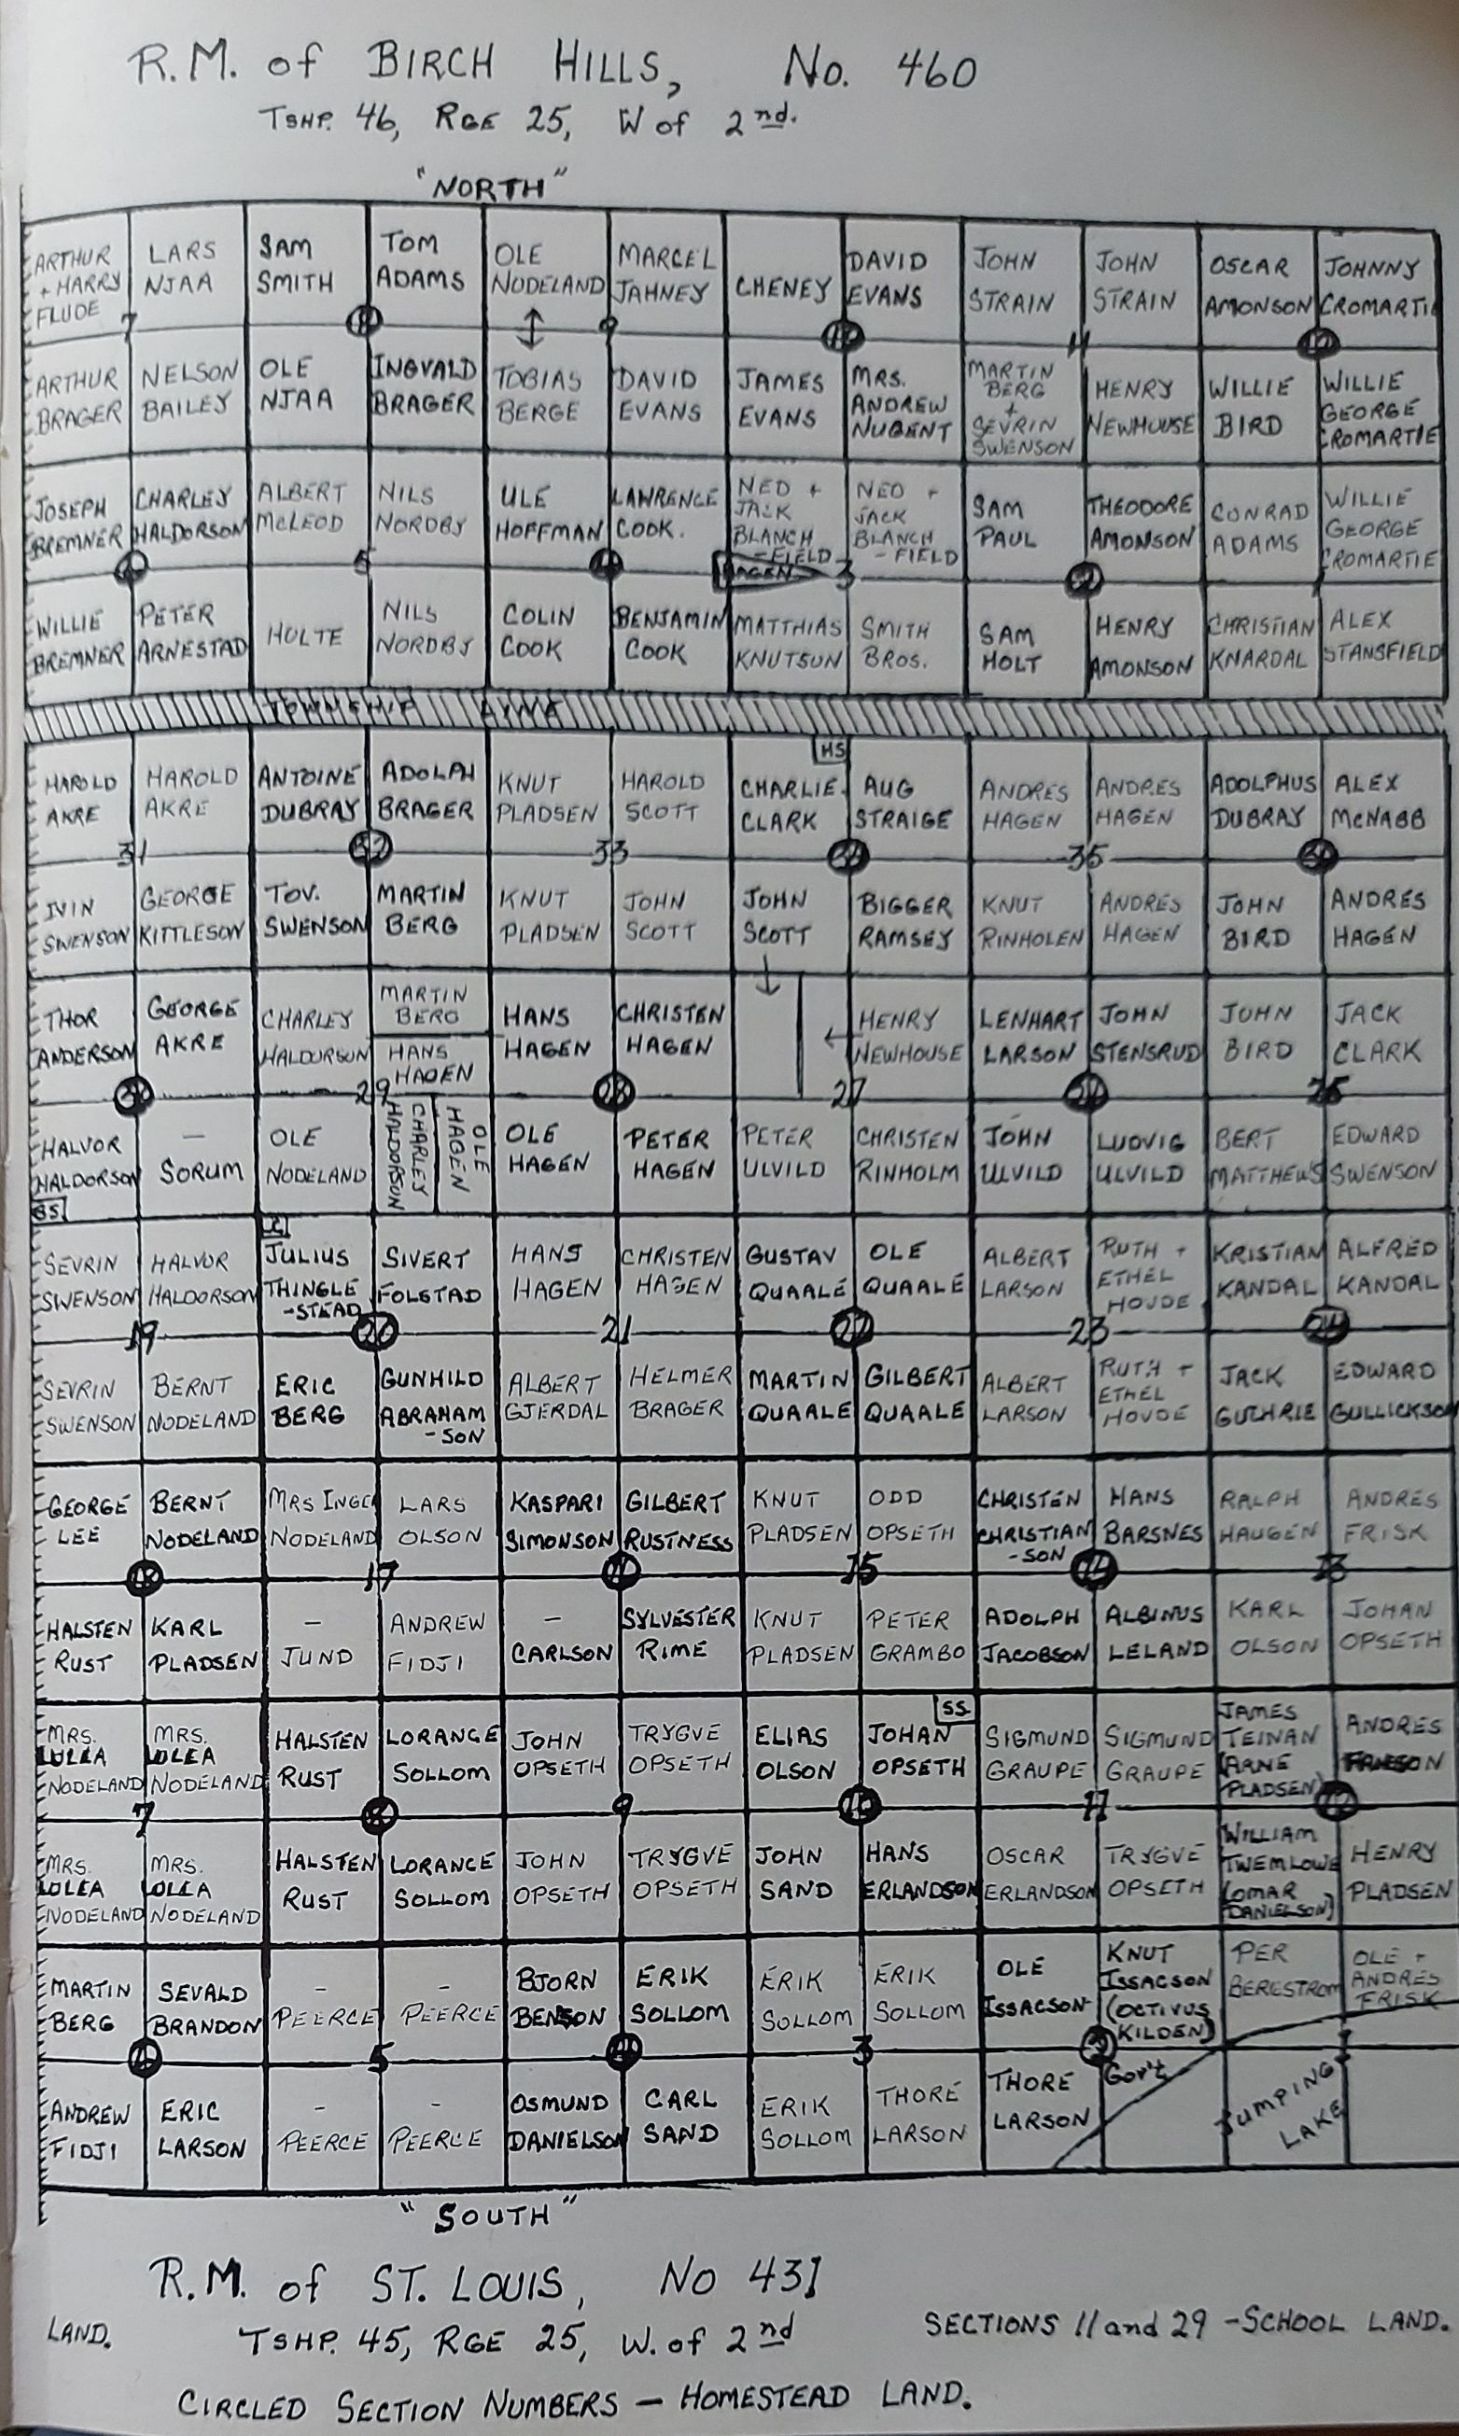 R.M. of BIRCH HILLS, No. 460
TSHP. 46, RGE 25, W of 2nd.
"NORTH"
ARTHUR + HARRY FLUDE
LARS NJAA
SAM SMITH
TOM ADAMS
OLE NODELAND
MARCEL JAHNEY
CHENEY
DAVID EVANS
JOHN STRAIN
JOHN STRAIN
OSCAR AMONSON
JOHNNY CROMARTIE
7 8 9 10 11 12
ARTHUR BRAGER
NELSON BAILEY
OLE NJAA
INGVALD BRAGER
TOBIAS BERGE
DAVID EVANS
JAMES EVANS
MRS. ANDREW NUGENT
MARTIN BERG + SEVRIN SWENSON
HENRY NEWHOUSE
WILLIE BIRD
WILLIE GEORGE CROMARTIE
JOSEPH BREMNER
CHARLEY HALDORSON
ALBERT McLEOD
NILS NORDBY
ULE HOFFMAN
LAWRENCE COOK.
NED + JACK BLANCH-FIELD
NED + JACK BLANCH-FIELD
SAM PAUL
THEODORE AMONSON
CONRAD ADAMS
WILLIE GEORGE CROMARTIE
6 5 4 HAGEN 3 2 1
WILLIE BREMNER
PETER ARNESTAD
HOLTE
NILS NORDBY
COLIN COOK
BENJAMIN COOK
MATTHIAS KNUTSON
SMITH BROS.
SAM HOLT
HENRY AMONSON
CHRISTIAN KNARDAL
ALEX STANSFIELD
TOWNSHIP LINE
HAROLD AKRE
HAROLD AKRE
ANTOINE DUBRAY
ADOLPH BRAGER
KNUT PLADSEN
HAROLD SCOTT
CHARLIE CLARK
HS
AUG STRAIGE
ANDRES HAGEN
ANDRES HAGEN
ADOLPHUS DUBRAY
ALEX McNABB
31 32 33 34 35 36
IVIN SWENSON
GEORGE KITTLESON
TOV. SWENSON
MARTIN BERG
KNUT PLADSEN
JOHN SCOTT
JOHN SCOTT
BIGGER RAMSEY
KNUT RINHOLEN
ANDRES HAGEN
JOHN BIRD
ANDRES HAGEN
THOR ANDERSON
GEORGE AKRE
CHARLEY HALDORSON
MARTIN BERG
HANS HAGEN
HANS HAGEN
CHRISTEN HAGEN
HENRY NEWHOUSE
LENHART LARSON
JOHN STENSRUD
JOHN BIRD
JACK CLARK
30 29 28 27 26 25
HALVOR HALDORSON
BS
— SORUM
OLE NODELAND
CHARLEY HALDORSON
OLE HAGEN
OLE HAGEN
PETER HAGEN
PETER ULVILD
CHRISTEN RINHOLM
JOHN ULVILD
LUDVIG ULVILD
BERT MATTHEWS
EDWARD SWENSON
SEVRIN SWENSON
HALVOR HALDORSON
JULIUS THINGLE-STEAD
SIVERT FOLSTAD
HANS HAGEN
CHRISTEN HAGEN
GUSTAV QUAALE
OLE QUAALE
ALBERT LARSON
RUTH + ETHEL HOVDE
KRISTIAN KANDAL
ALFRED KANDAL
19 20 21 22 23 24
SEVRIN SWENSON
BERNT NODELAND
ERIC BERG
GUNHILD ABRAHAM-SON
ALBERT GJERDAL
HELMER BRAGER
MARTIN QUAALE
GILBERT QUAALE
ALBERT LARSON
RUTH + ETHEL HOVDE
JACK GUTHRIE
EDWARD GULLICKSON
GEORGE LEE
BERNT NODELAND
MRS INGER NODELAND
LARS OLSON
KASPARI SIMONSON
GILBERT RUSTNESS
KNUT PLADSEN
ODD OPSETH
CHRISTEN CHRISTIAN-SON
HANS BARSNES
RALPH HAUGEN
ANDRES FRISK
18 17 16 15 14 13
HALSTEN RUST
KARL PLADSEN
— JUND
ANDREW FIDJI
— CARLSON
SYLVESTER RIME
KNUT PLADSEN
PETER GRAMBO
ADOLPH JACOBSON
ALBINUS LELAND
KARL OLSON
JOHAN OPSETH
MRS. LOLLA NODELAND
MRS. LOLLA NODELAND
HALSTEN RUST
LORANGE SOLLOM
JOHN OPSETH
TRYGVE OPSETH
ELIAS OLSON
SS
JOHAN OPSETH
SIGMUND GRAUPE
SIGMUND GRAUPE
JAMES TEINAN (ARNE PLADSEN)
ANDRES
7 8 9 10 11 12
MRS. LOLLA NODELAND
MRS. LOLLA NODELAND
HALSTEN RUST
LORANCE SOLLOM
JOHN OPSETH
TRYGVE OPSETH
JOHN SAND
HANS ERLANDSON
OSCAR ERLANDSON
TRYGVE OPSETH
WILLIAM TWEMLOWE (OMAR DANIELSON)
HENRY PLADSEN
MARTIN BERG
SEVALD BRANDON
- PEERCE
- PEERCE
BJORN BENSON
ERIK SOLLOM
ERIK SOLLOM
ERIK SOLLOM
OLE ISSACSON
KNUT ISSACSON (OCTIVUS KILDEN)
PER BERGSTROM
OLE + ANDRES FRISK
6 5 4 3 2 1
ANDREW FIDJI
ERIC LARSON
- PEERCE
- PEERCE
OSMUND DANIELSON
CARL SAND
ERIK SOLLOM
THORE LARSON
THORE LARSON
Gov't
JUMPING LAKE
"SOUTH"
R.M. of ST. LOUIS, NO 431
LAND. TSHP. 45, RGE 25, W. of 2nd
SECTIONS 11 and 29 - SCHOOL LAND.
CIRCLED SECTION NUMBERS — HOMESTEAD LAND.